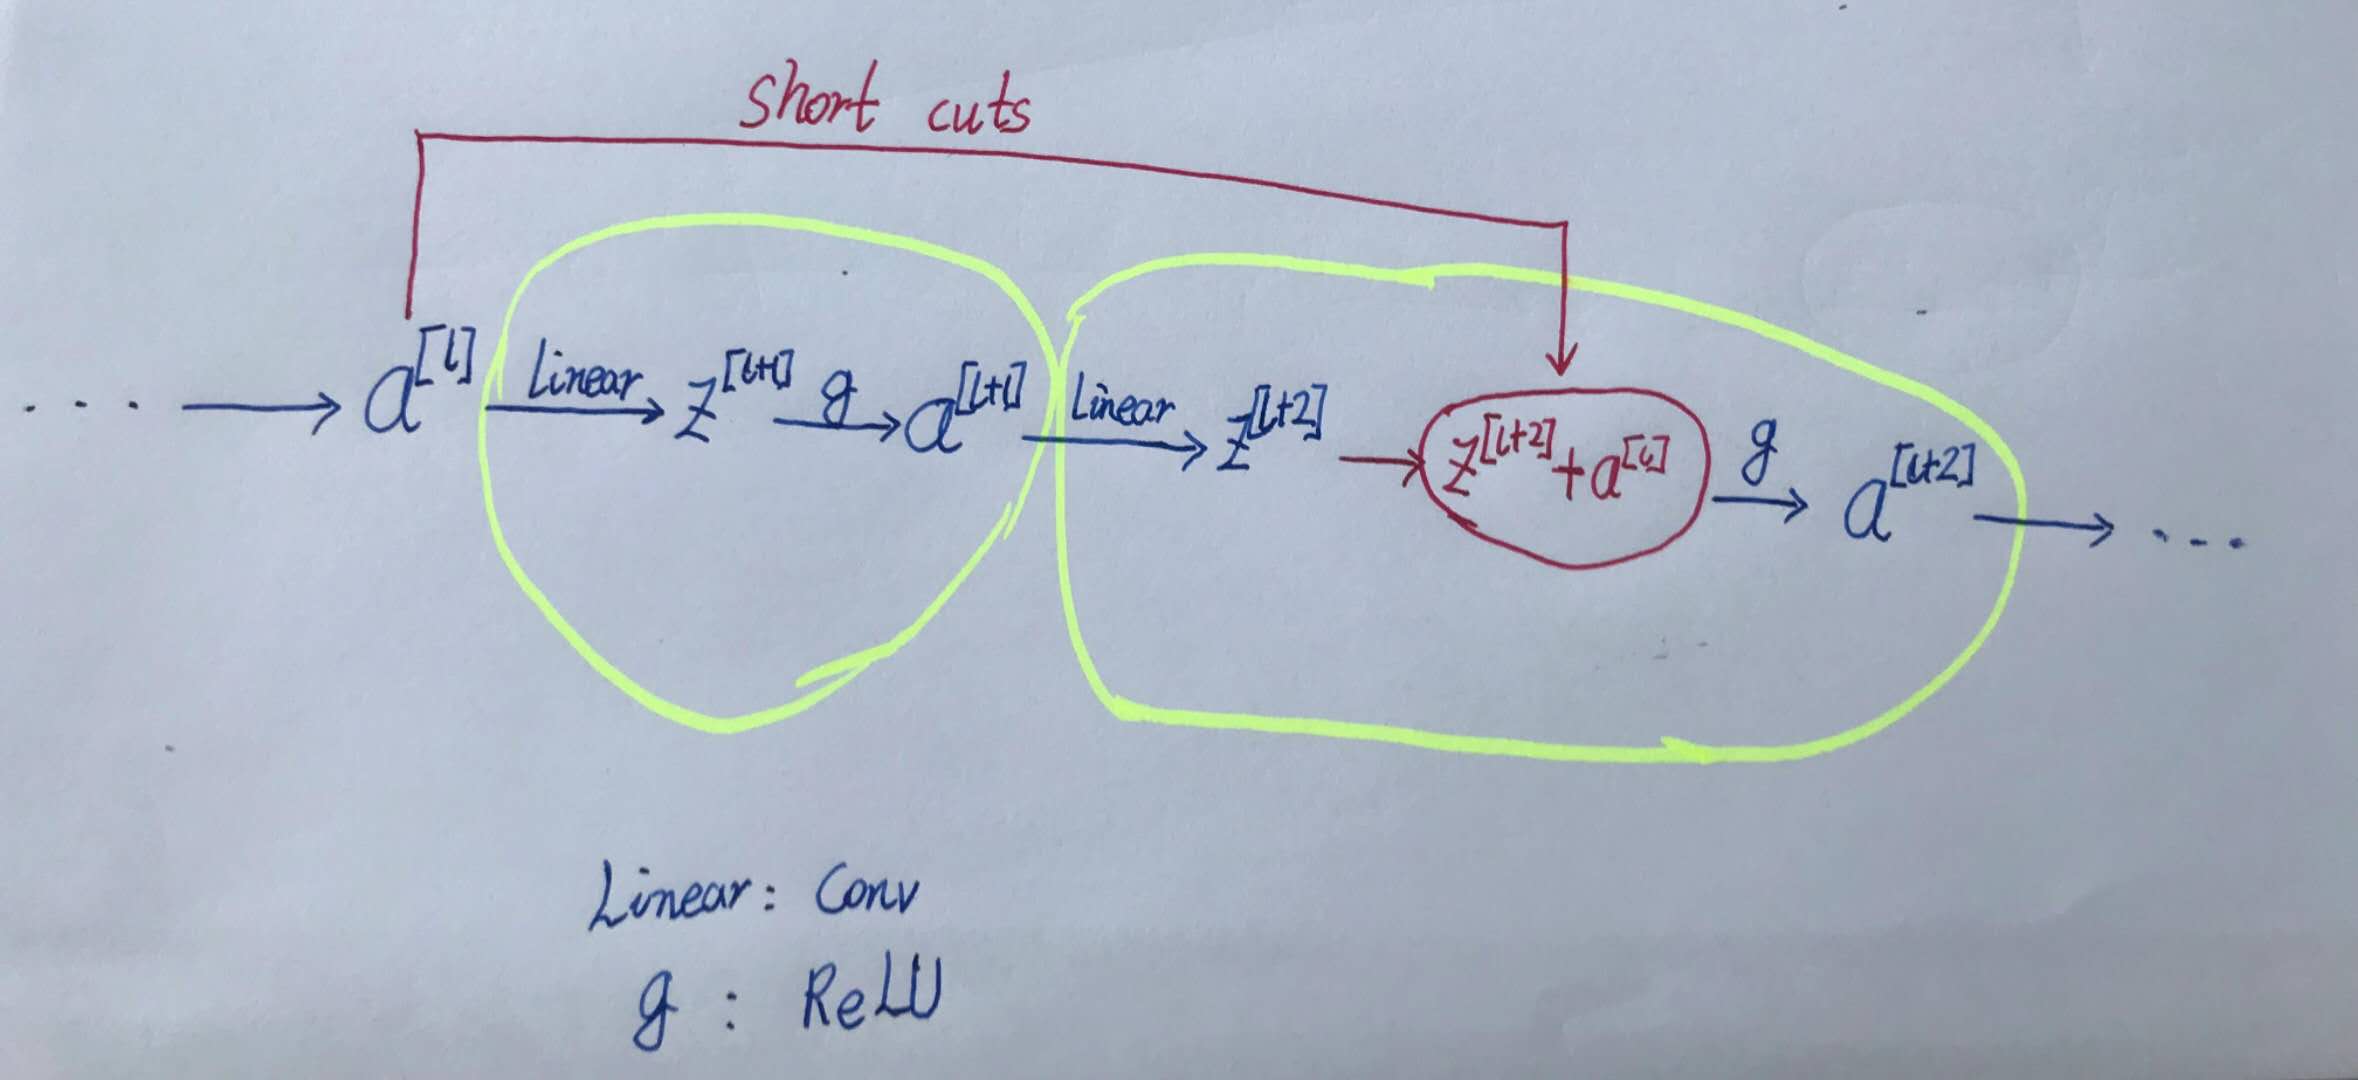 Short cuts
... → a^[l] Linear → z^[l+1] g → a^[l+1] Linear → z^[l+2] → z^[l+2] + a^[l] g → a^[l+2] → ...
Linear: Conv
g : ReLU